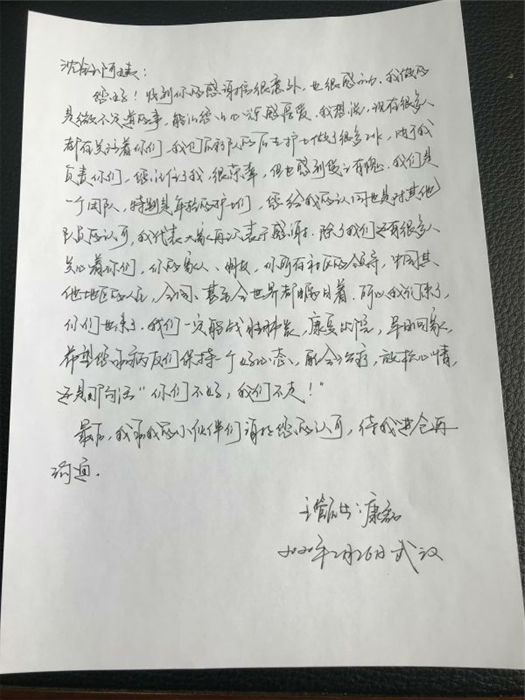 阿姨：
您好！收到你的感谢信很意外，也很感动，我做的
是微不足道的事，能让您心中感恩，我想说，现有很多人
都在关注着你们，我们团队的医生护士做了很多工作，由于我
负责你们，您记住了我，很荣幸，但也感到受之有愧，我们是
一个团队，特别是年轻的护士们，您给我的认可也是对其他
队员的认可，我代表大家再次表示感谢，除了我们还有很多人
关心着你们，你的家人、朋友，你所在社区的领导，中国其
他地区的人民，全国、甚至全世界都瞩目着，所以我们来了，
他们也来了，我们一定能战胜肺炎，康复出院，早日回家，
希望您和病友们保持一个好心态，配合治疗，放松心情，
还是那句话“你们不好，我们不走！”
最后，我和我的小伙伴们谢谢您的认可，待我进仓再
沟通．
主管医生：康磊
2020年2月26日 武汉